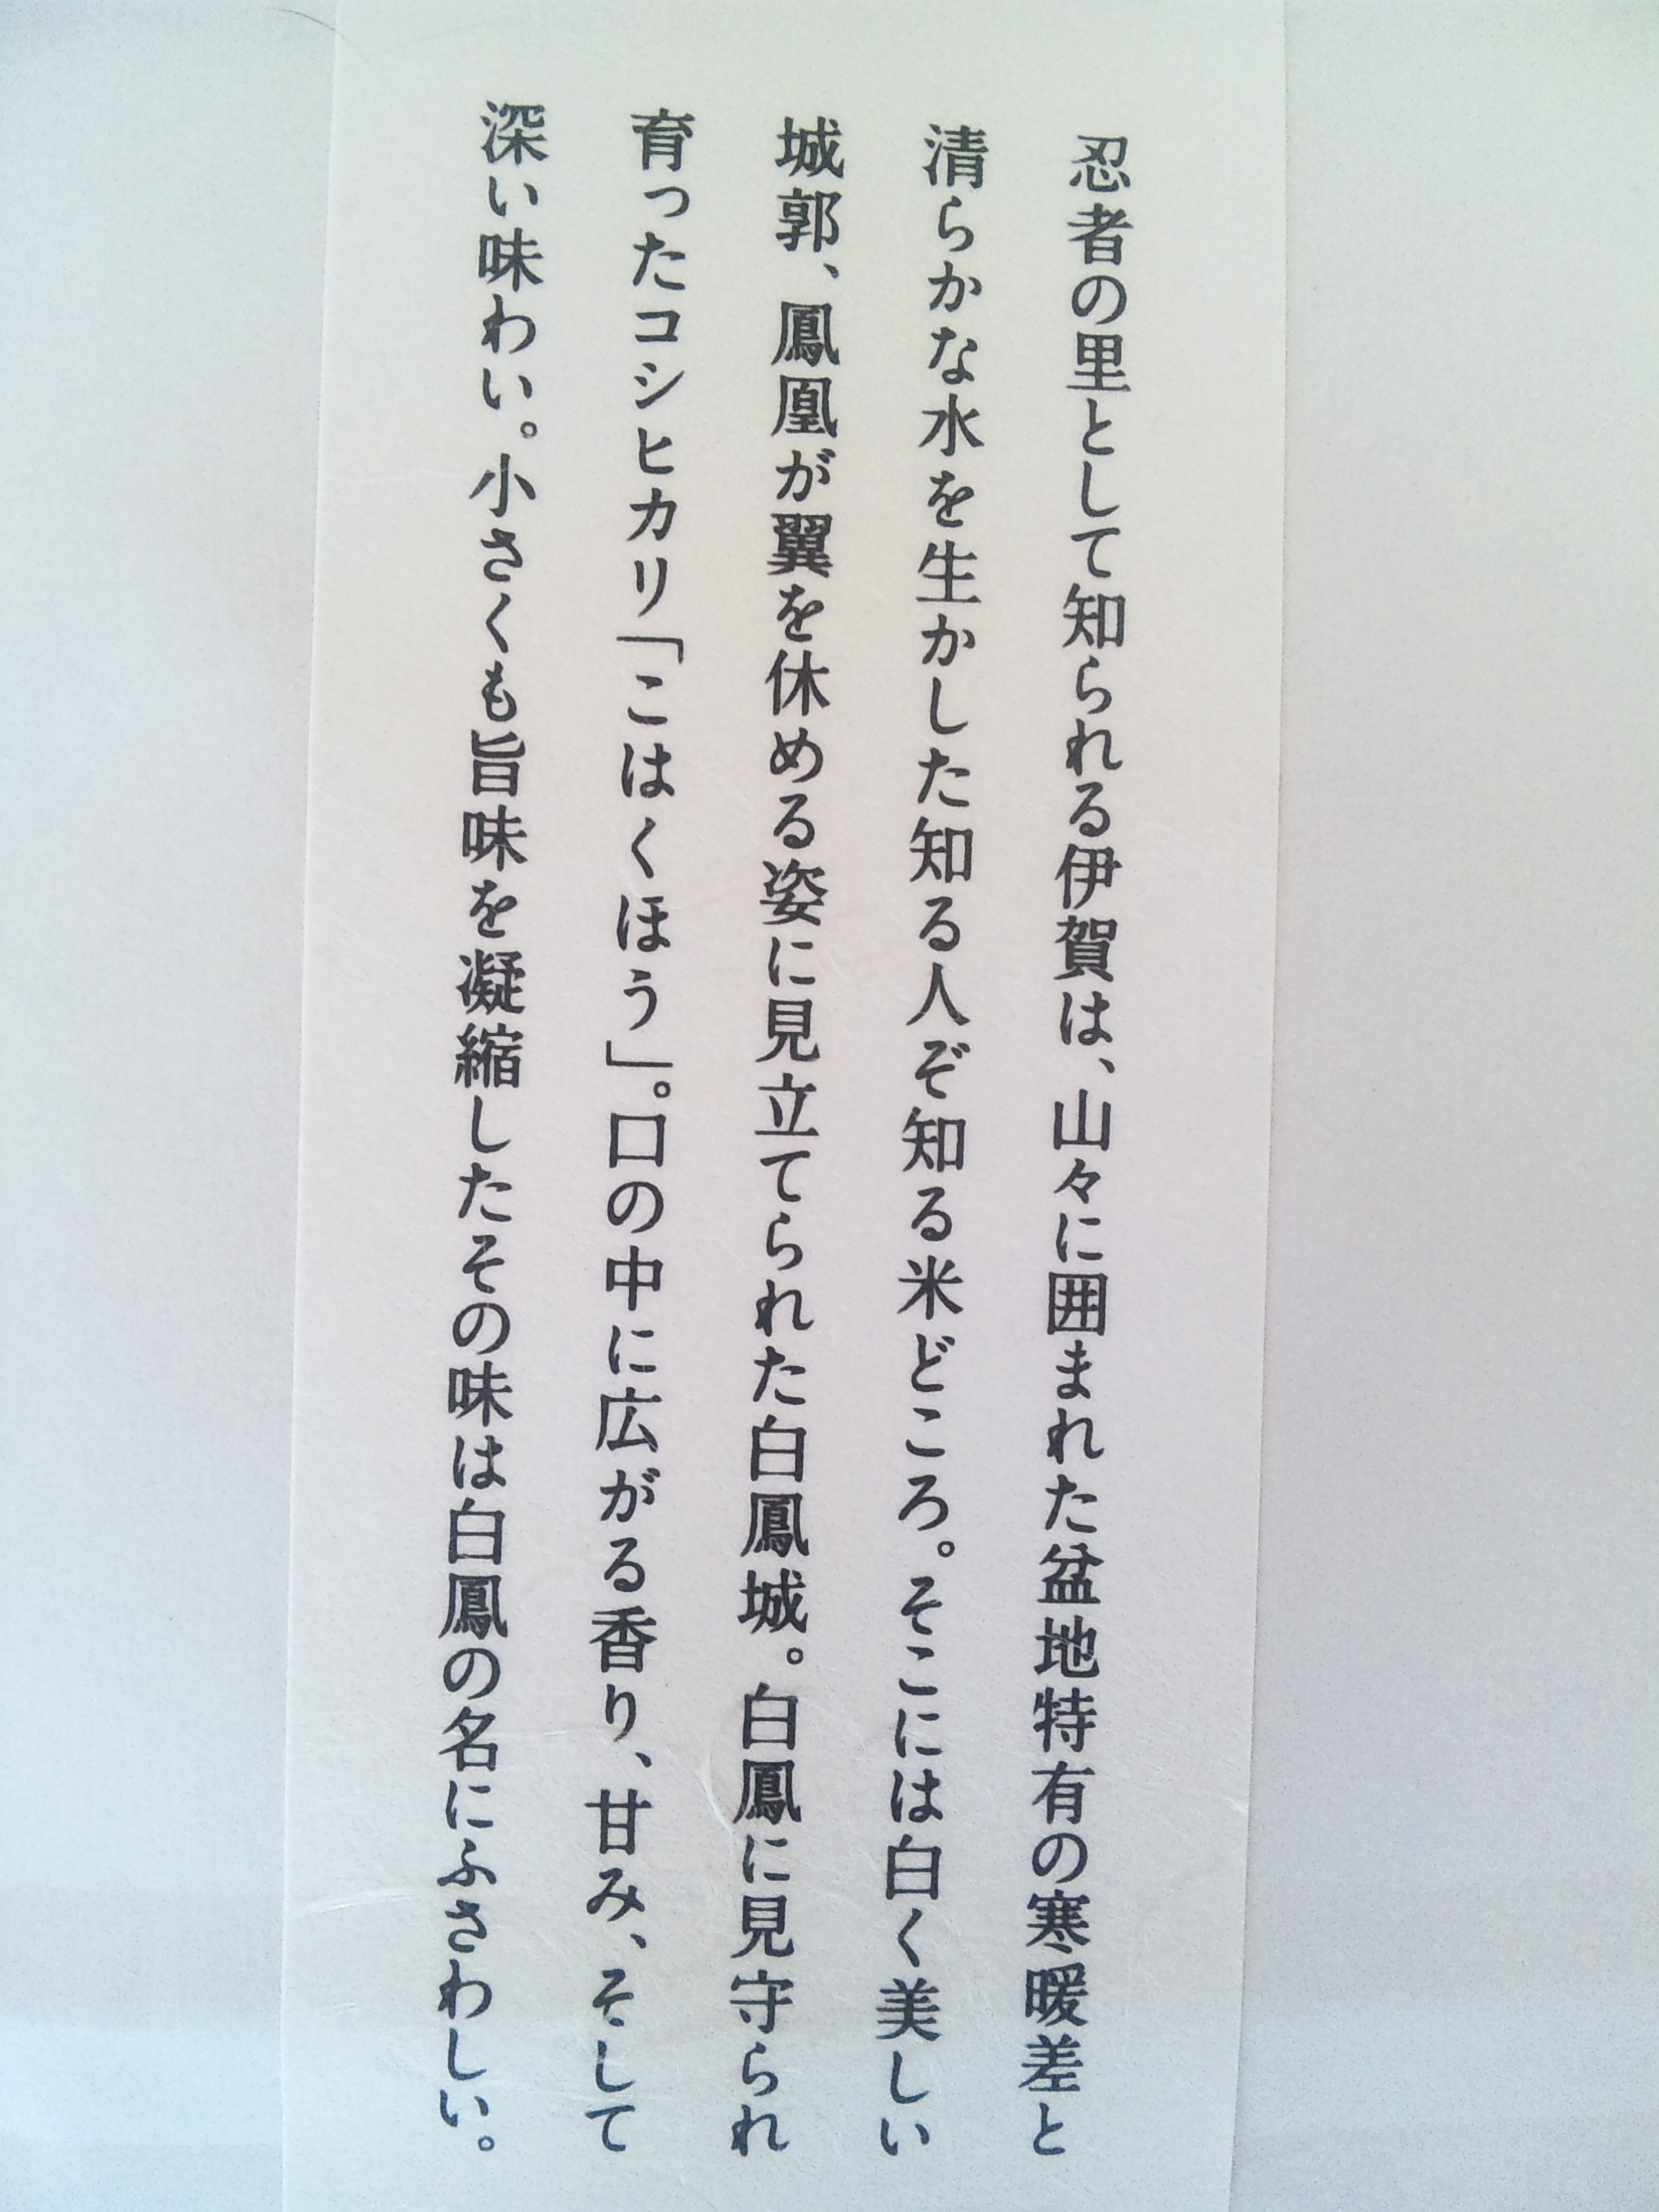 忍者の里として知られる伊賀は、山々に囲まれた盆地特有の寒暖差と
清らかな水を生かした知る人ぞ知る米どころ。そこには白く美しい
城郭、鳳凰が翼を休める姿に見立てられた白鳳城。白鳳に見守られ
育ったコシヒカリ「こはくほう」。口の中に広がる香り、甘み、そして
深い味わい。小さくも旨味を凝縮したその味は白鳳の名にふさわしい。